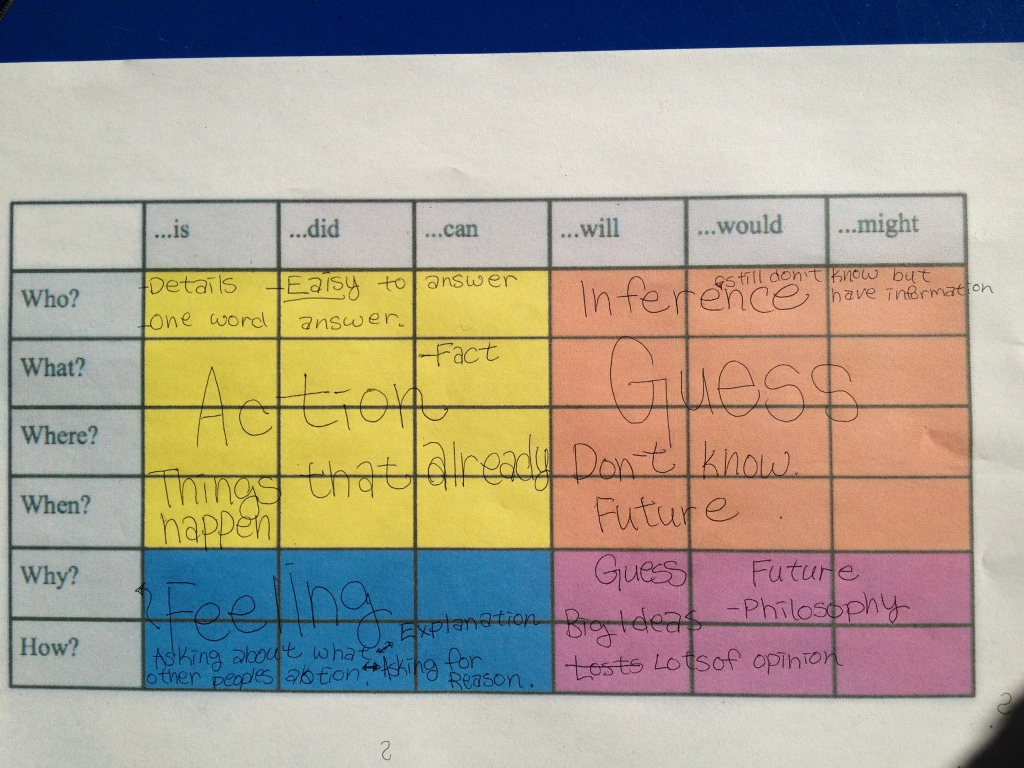 ...is ...did ...can ...will ...would ...might
Who?
-Details -Eaisy to answer
-one word answer.
Inference
still don't know but
have information
What?
-Fact
Action
Guess
Where?
Things that already
happen
Don't know.
When?
Future
Why?
Feeling
Explanation
Guess Future
Big Ideas -Philosophy
How?
Asking about what
other peoples abtion.
Asking for
Reason.
Losts Lotsof opinion